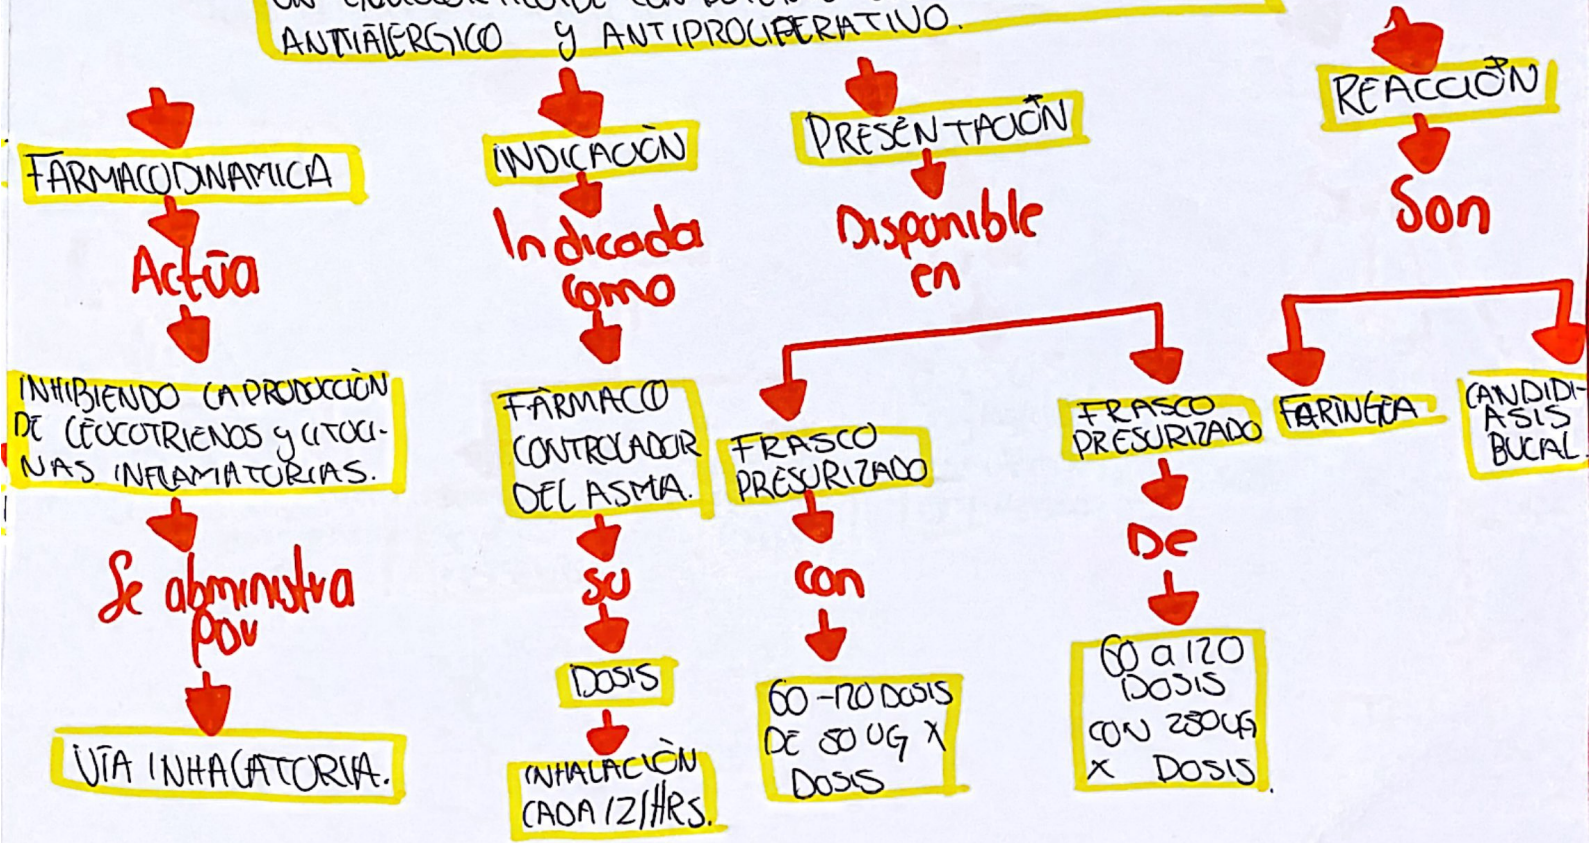 ANTIALERGICO y ANTIPROLIFERATIVO.
FARMACODINAMICA
Actúa
INHIBIENDO LA PRODUCCIÓN
DE LEUCOTRIENOS y CITOCI-
NAS INFLAMATORIAS.
Se abministra
por
VÍA INHALATORIA.
INDICACIÓN
Indicada
como
FÁRMACO
CONTROLADOR
DEL ASMA.
su
DOSIS
INHALACIÓN
CADA 12/HRS.
PRESENTACIÓN
Disponible
en
FRASCO
PRESURIZADO
con
60-120 DOSIS
DE 50 UG X
DOSIS
FRASCO
PRESURIZADO
De
60 a 120
DOSIS
CON 250UG
X DOSIS.
REACCIÓN
Son
FARINGEA
CANDIDI-
ASIS
BUCAL.